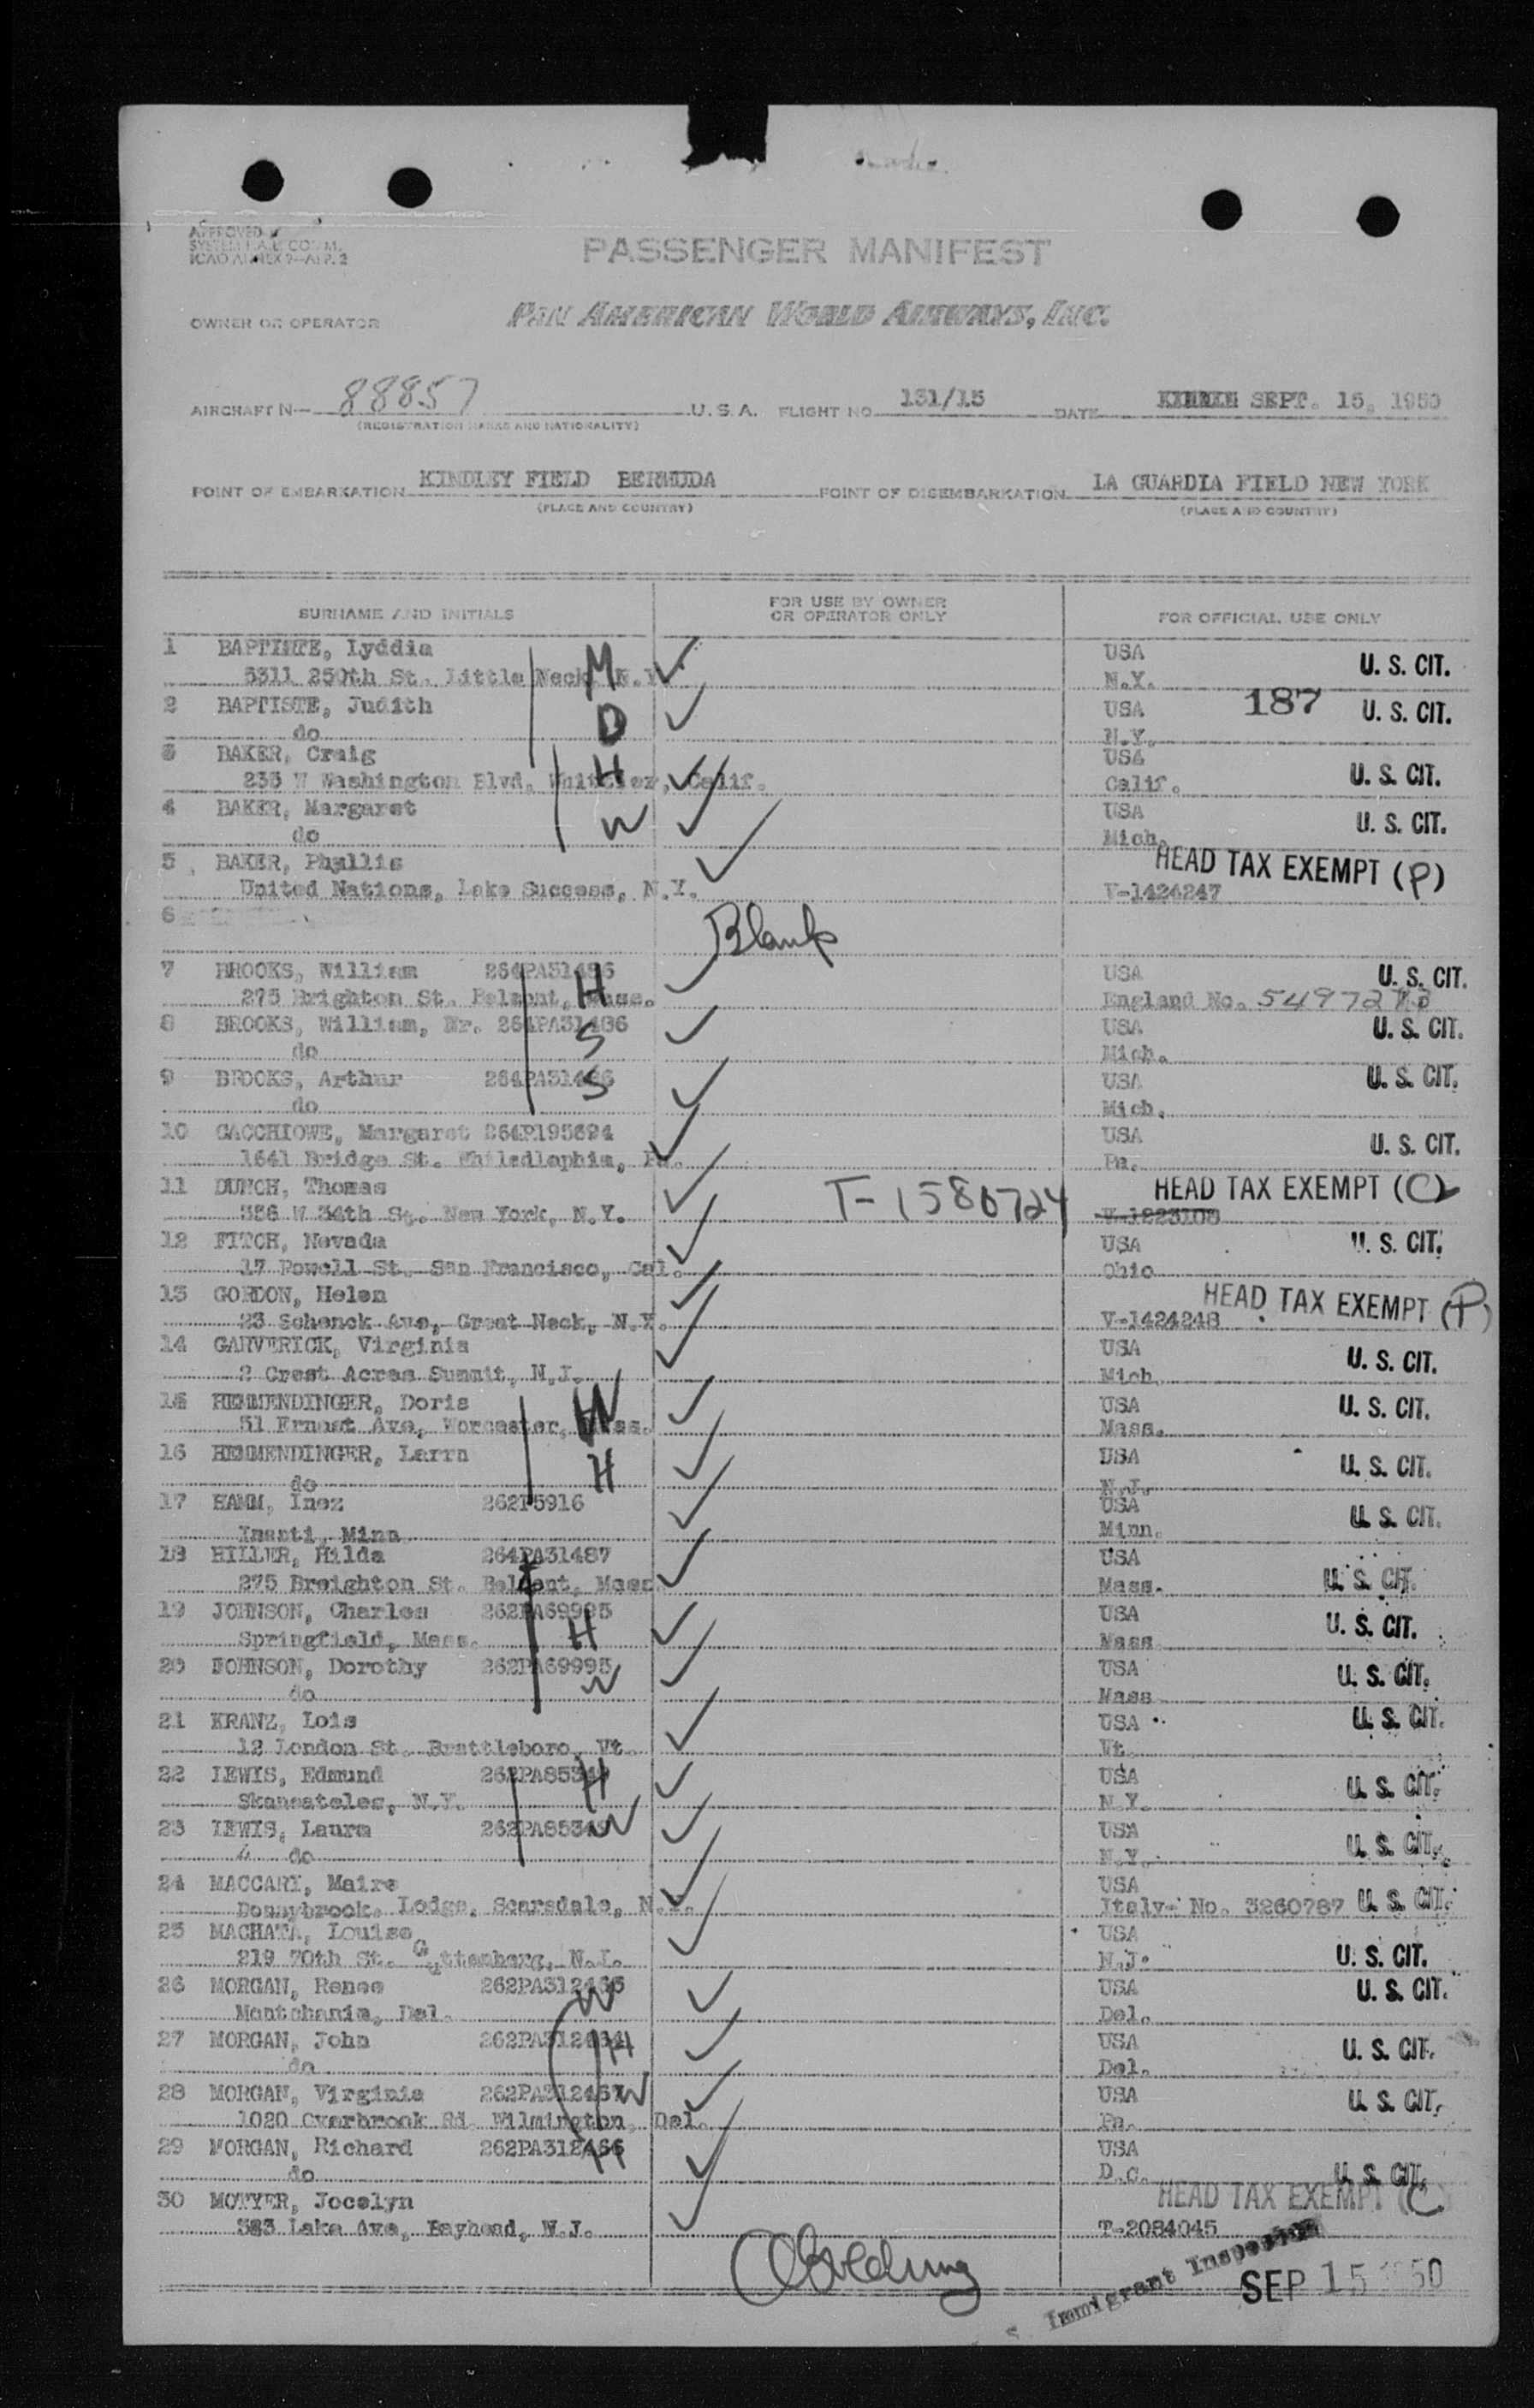 APPROVED
PASSENGER MANIFEST
OWNER OR OPERATOR PAN AMERICAN WORLD AIRWAYS, INC.
AIRCRAFT N— 88857 U.S.A. FLIGHT NO. 131/15 DATE SEPT. 15, 1950
(REGISTRATION MARKS AND NATIONALITY)
POINT OF EMBARKATION KINDLEY FIELD BERMUDA POINT OF DISEMBARKATION LA GUARDIA FIELD NEW YORK
(PLACE AND COUNTRY) (PLACE AND COUNTRY)
SURNAME AND INITIALS FOR USE BY OWNER OR OPERATOR ONLY FOR OFFICIAL USE ONLY
1 Lyddia M USA U. S. CIT.
5311 250th St. Little Neck, N.Y. N.Y.
2 BAPTISTE, Judith D USA 187 U. S. CIT.
do N.Y.
3 BAKER, Craig H USA U. S. CIT.
235 W Washington Blvd, Whittier, Calif. Calif.
4 BAKER, Margaret W USA U. S. CIT.
do Mich.
5 BAKER, Phyllis HEAD TAX EXEMPT (P)
United Nations, Lake Success, N.Y. V-1424247
6 Blank
7 BROOKS, William 264PA31486 H USA U. S. CIT.
275 Brighton St. Belmont, Mass. England No.
8 BROOKS, William, 264PA31486 S USA U. S. CIT.
do Mich.
9 BROOKS, Arthur 264PA31486 S USA U. S. CIT.
do Mich.
10 Margaret USA U. S. CIT.
1641 Bridge St. Philedlaphia, Pa. Pa.
11 Thomas T-1580724 HEAD TAX EXEMPT (C)
356 W 34th St. New York, N.Y. V-1223108
12 FITCH, Nevada USA U. S. CIT.
17 Powell St. San Francisco, Cal. Ohio
13 GORDON, Helen HEAD TAX EXEMPT (P)
23 Schenck Ave, Great Neck, N.Y. V-1424248
14 GARVERICK, Virginia USA U. S. CIT.
2 Crest Acres Summit, N.J. Mich
15 HEMMENDINGER, Doris W USA U. S. CIT.
51 Ernest Ave, Worcester, Mass. Mass.
16 HEMMENDINGER, H USA U. S. CIT.
do N.J.
17 HAMM, Inez 262P5916 USA U. S. CIT.
Minn Minn.
18 HILLER, Hilda 264PA31487 USA U. S. CIT.
275 Breighton St. Belmont, Mass Mass.
19 JOHNSON, Charles 262PA69995 H USA U. S. CIT.
Springfield, Mass. Mass
20 JOHNSON, Dorothy 262PA69995 W USA U. S. CIT.
do Mass
21 KRANZ, Lois USA U. S. CIT.
12 London St. Brattleboro, Vt. Vt.
22 LEWIS, Edmund H USA U. S. CIT.
Skaneateles, N.Y. N.Y.
23 LEWIS, Laura W USA U. S. CIT.
do N.Y.
24 MACCARI, USA
Donnybrook, Lodge, Scarsdale, N.Y. Italy- No. 3260787 U. S. CIT.
25 MACHATA, Louise USA
219 70th St. Guttemberg, N.J. N.J. U. S. CIT.
26 MORGAN, Renee 262PA312465 W USA U. S. CIT.
Montchanin, Del. Del.
27 MORGAN, John 262PA312464 H USA U. S. CIT.
do Del.
28 MORGAN, Virginia W USA U. S. CIT.
1020 Overbrook Rd. Wilmington, Del. Pa.
29 MORGAN, Richard 262PA312466 H USA
do D.C. U. S. CIT.
30 MOTYER, Jocelyn HEAD TAX EXEMPT (C)
383 Lake Ave, Bayhead, N.J. T-2084045
Immigrant Inspector
SEP 15 1950